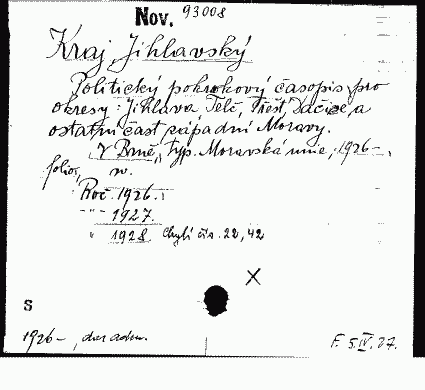 Nov. 93008
Kraj Jihlavský
Politický pokrokový časopis pro
okresy: Jihlava, Telč, Třešť, Dačice, a
ostatní část západní Moravy.
V Brně, typ. Moravská unie, 1926-,
folio, w.
Roč. 1926.
" 1927.
" 1928 Chybí čís. 22, 42
S
1926-, dar adm.
F. 5.IV.27.